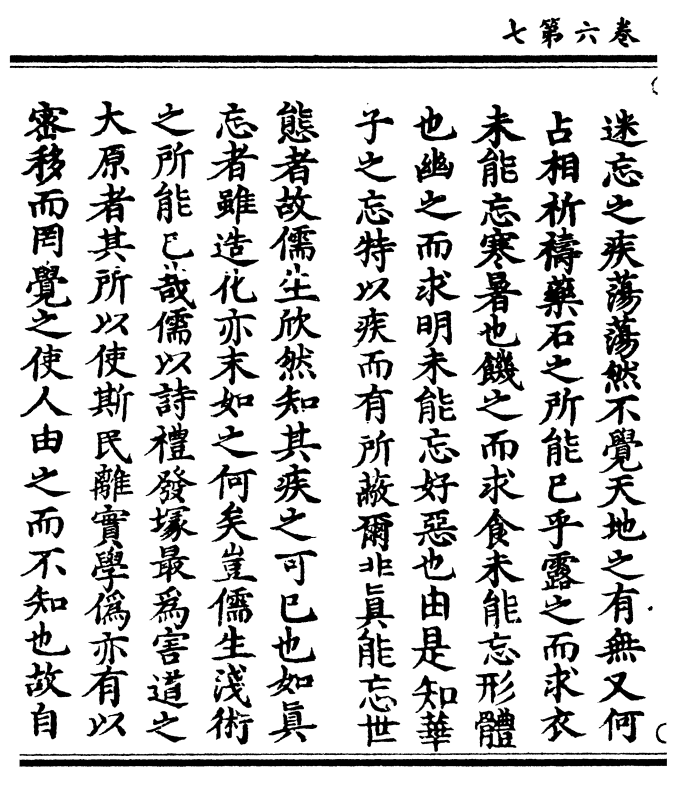 卷六第七
迷忘之疾蕩蕩然不覺天地之有無又何
占相祈禱藥石之所能已乎露之而求衣
未能忘寒暑也饑之而求食未能忘形體
也幽之而求明未能忘好惡也由是知華
子之忘特以疾而有所蔽爾非眞能忘世
態者故儒生欣然知其疾之可已也如眞
忘者雖造化亦末如之何矣豈儒生淺術
之所能已哉儒以詩禮發塚最爲害道之
大原者其所以使斯民離實學僞亦有以
密移而罔覺之使人由之而不知也故自